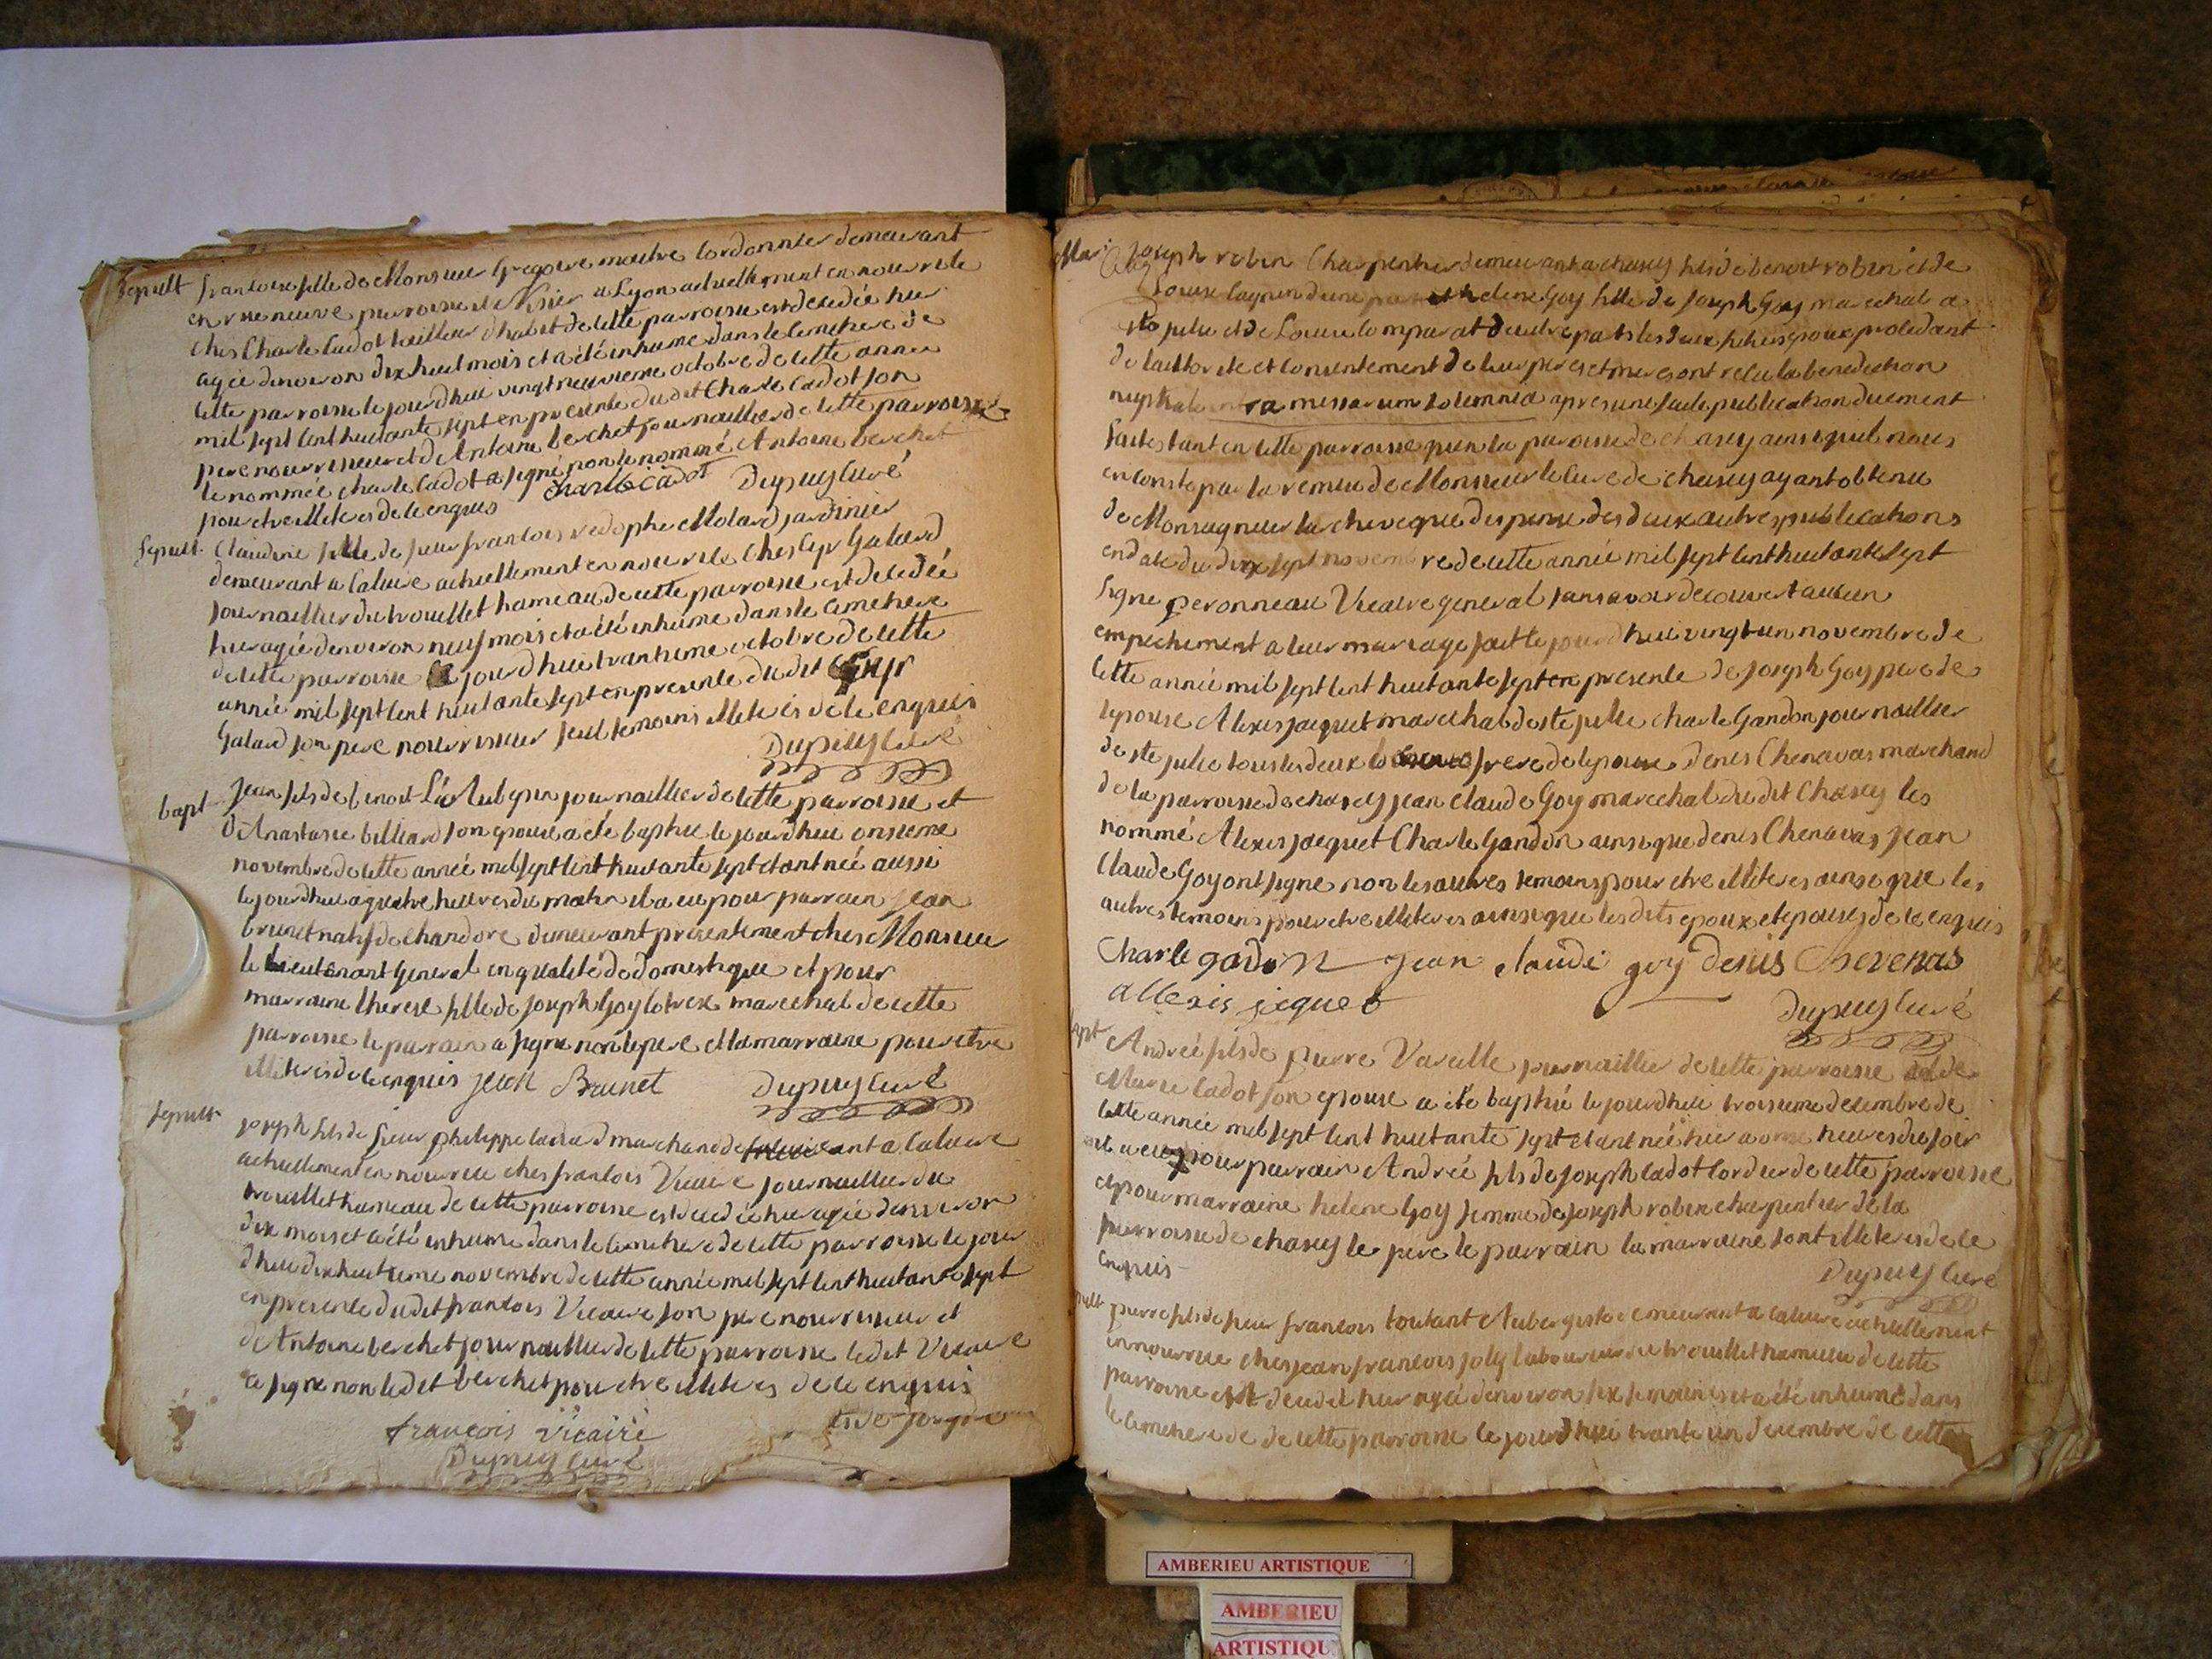 Sepult francoise fille de Monsieur Gregoire maitre Cordonnier demeurant
en rue neuve parroisse st Nisier a Lyon actuellement en nourrice
ches Charle Cadot tailleur d'habit de cette parroisse est decedée hier
agée denviron dix huit mois et a été inhumé dans le cimetiere de
cette parroisse le jourd'hui vingt neuvieme octobre de cette année
mil sept cent huitante sept en presence du dit Charle Cadot son
pere nourrisseur et de Antoine berchet journaillier de cette parroisse
le nommée charle Cadot a signé non le nommé Antoine berchet
pour etre illiteres de ce enquis charle cadot Dupuys curé
Sepult. Claudine fille de sieur francois Molard jardinier
demeurant a Caluire actuellement en nourrice ches Cyr Galard
journaillier du trouillet hameau de cette parroisse est decedée
hier agée denviron neuf mois et a été inhumé dans le cimetiere
de cette parroisse le jourd'hui trantieme octobre de cette
année mil sept cent huitante sept en presence du dit Cyr
Galard son pere nourrisseur seul temoins illiterés de ce enquis
Dupuys curé
bapt Jean fils de benoit Aubepin journaillier de cette parroisse et
d'Anastasie billiard son epouse a eté baptisé le jourd'hui onsieme
novembre de cette année mil sept cent huitante sept etant née aussi
le jourd'hui a quatre heures du matin il a eu pour parrain jean
brunet natif de Chandore demeurant presentement ches Monsieur
le Lieutenant General en qualité de domestique et pour
marraine therese fille de joseph Goy marechal de cette
parroisse le parrain a signe non le pere et la marraine pour etre
illiterés de ce enquis jean Brunet Dupuys curé
sepult joseph fils de sieur philippe marchand demeurant a Caluire
actuellement en nourrice ches francois Vicaire journaillier du
trouillet hameau de cette parroisse est decedée hier agée denviron
dix mois et a été inhumé dans le cimetiere de cette parroisse le jour
d'hui dix huitieme novembre de cette année mil sept cent huitante sept
en presence du dit francois Vicaire son pere nourrisseur et
de Antoine berchet journaillier de cette parroisse ledit Vicaire
a signe non ledit berchet pour etre illiteres de ce enquis
francois vicaire
Dupuys curé
Mar joseph robin Charpentier demeurant a chasey fils de benoit robin et de
Louise Cagnin dune part et helene Goy fille de joseph Goy marechal a
ste julie et de Louise comparat d'autre part les deux futurs epoux procedant
de lauthorité et consentement de leur peres et meres ont recu la benediction
nuptiale intra missarum solemnia apres une seule publication duement
faites tant en cette parroisse quen la paroisse de chasey ainsi quil nous
en conste par la remise de Monsieur le Cure de chasey ayant obtenu
de Monseigneur larcheveque dispense des deux autres publications
en date du dix sept novembre de cette année mil sept cent huitante sept
signe peronneau Vicaire general sans avoir decouvert aucun
empechement a leur mariage fait le jourd'hui vingt un novembre de
cette année mil sept cent huitante sept en presence de joseph Goy pere de
lepouse Alexis jacquet marechal de ste julie charle Gandon journaillier
de ste julie tous les deux frere de lepouse denis Chenavas marchand
de la parroisse de chasey jean Claude Goy marechal du dit Chasey les
nommé Alexis jacquet Charle Gandon ainsi que denis Chenavas jean
Claude Goy ont signe non les autres temoins pour etre illiteres ainsi que les
autres temoins pour etre illiteres ainsi que les dits epoux et epouse de ce enquis
Charle gadon jean claude goy denis Chevenas
allexis jequet Dupuys curé
bapt Andrée fils de pierre Vareille journaillier de cette parroisse et de
Marie Cadot son epouse a été baptisé le jourd'hui troisieme decembre de
cette année mil sept cent huitante sept etant née hier a onse heures du soir
il a eu pour parrain Andrée fils de joseph Cadot Cordier de cette parroisse
et pour marraine helene Goy femme de joseph robin charpentier de la
parroisse de chasey le pere le parrain la marraine sont illiterés de ce
enquis Dupuys curé
pult pierre fils de sieur francois toutant Aubergiste demeurant a caluire actuellement
en nourrice ches jean francois joly laboureur du trouillet hameau de cette
parroisse est decedé hier agée denviron six semaines et a été inhumé dans
le cimetiere de cette parroisse le jourd'hui trante un decembre de cette
AMBERIEU ARTISTIQUE
AMBERIEU
ARTISTIQU